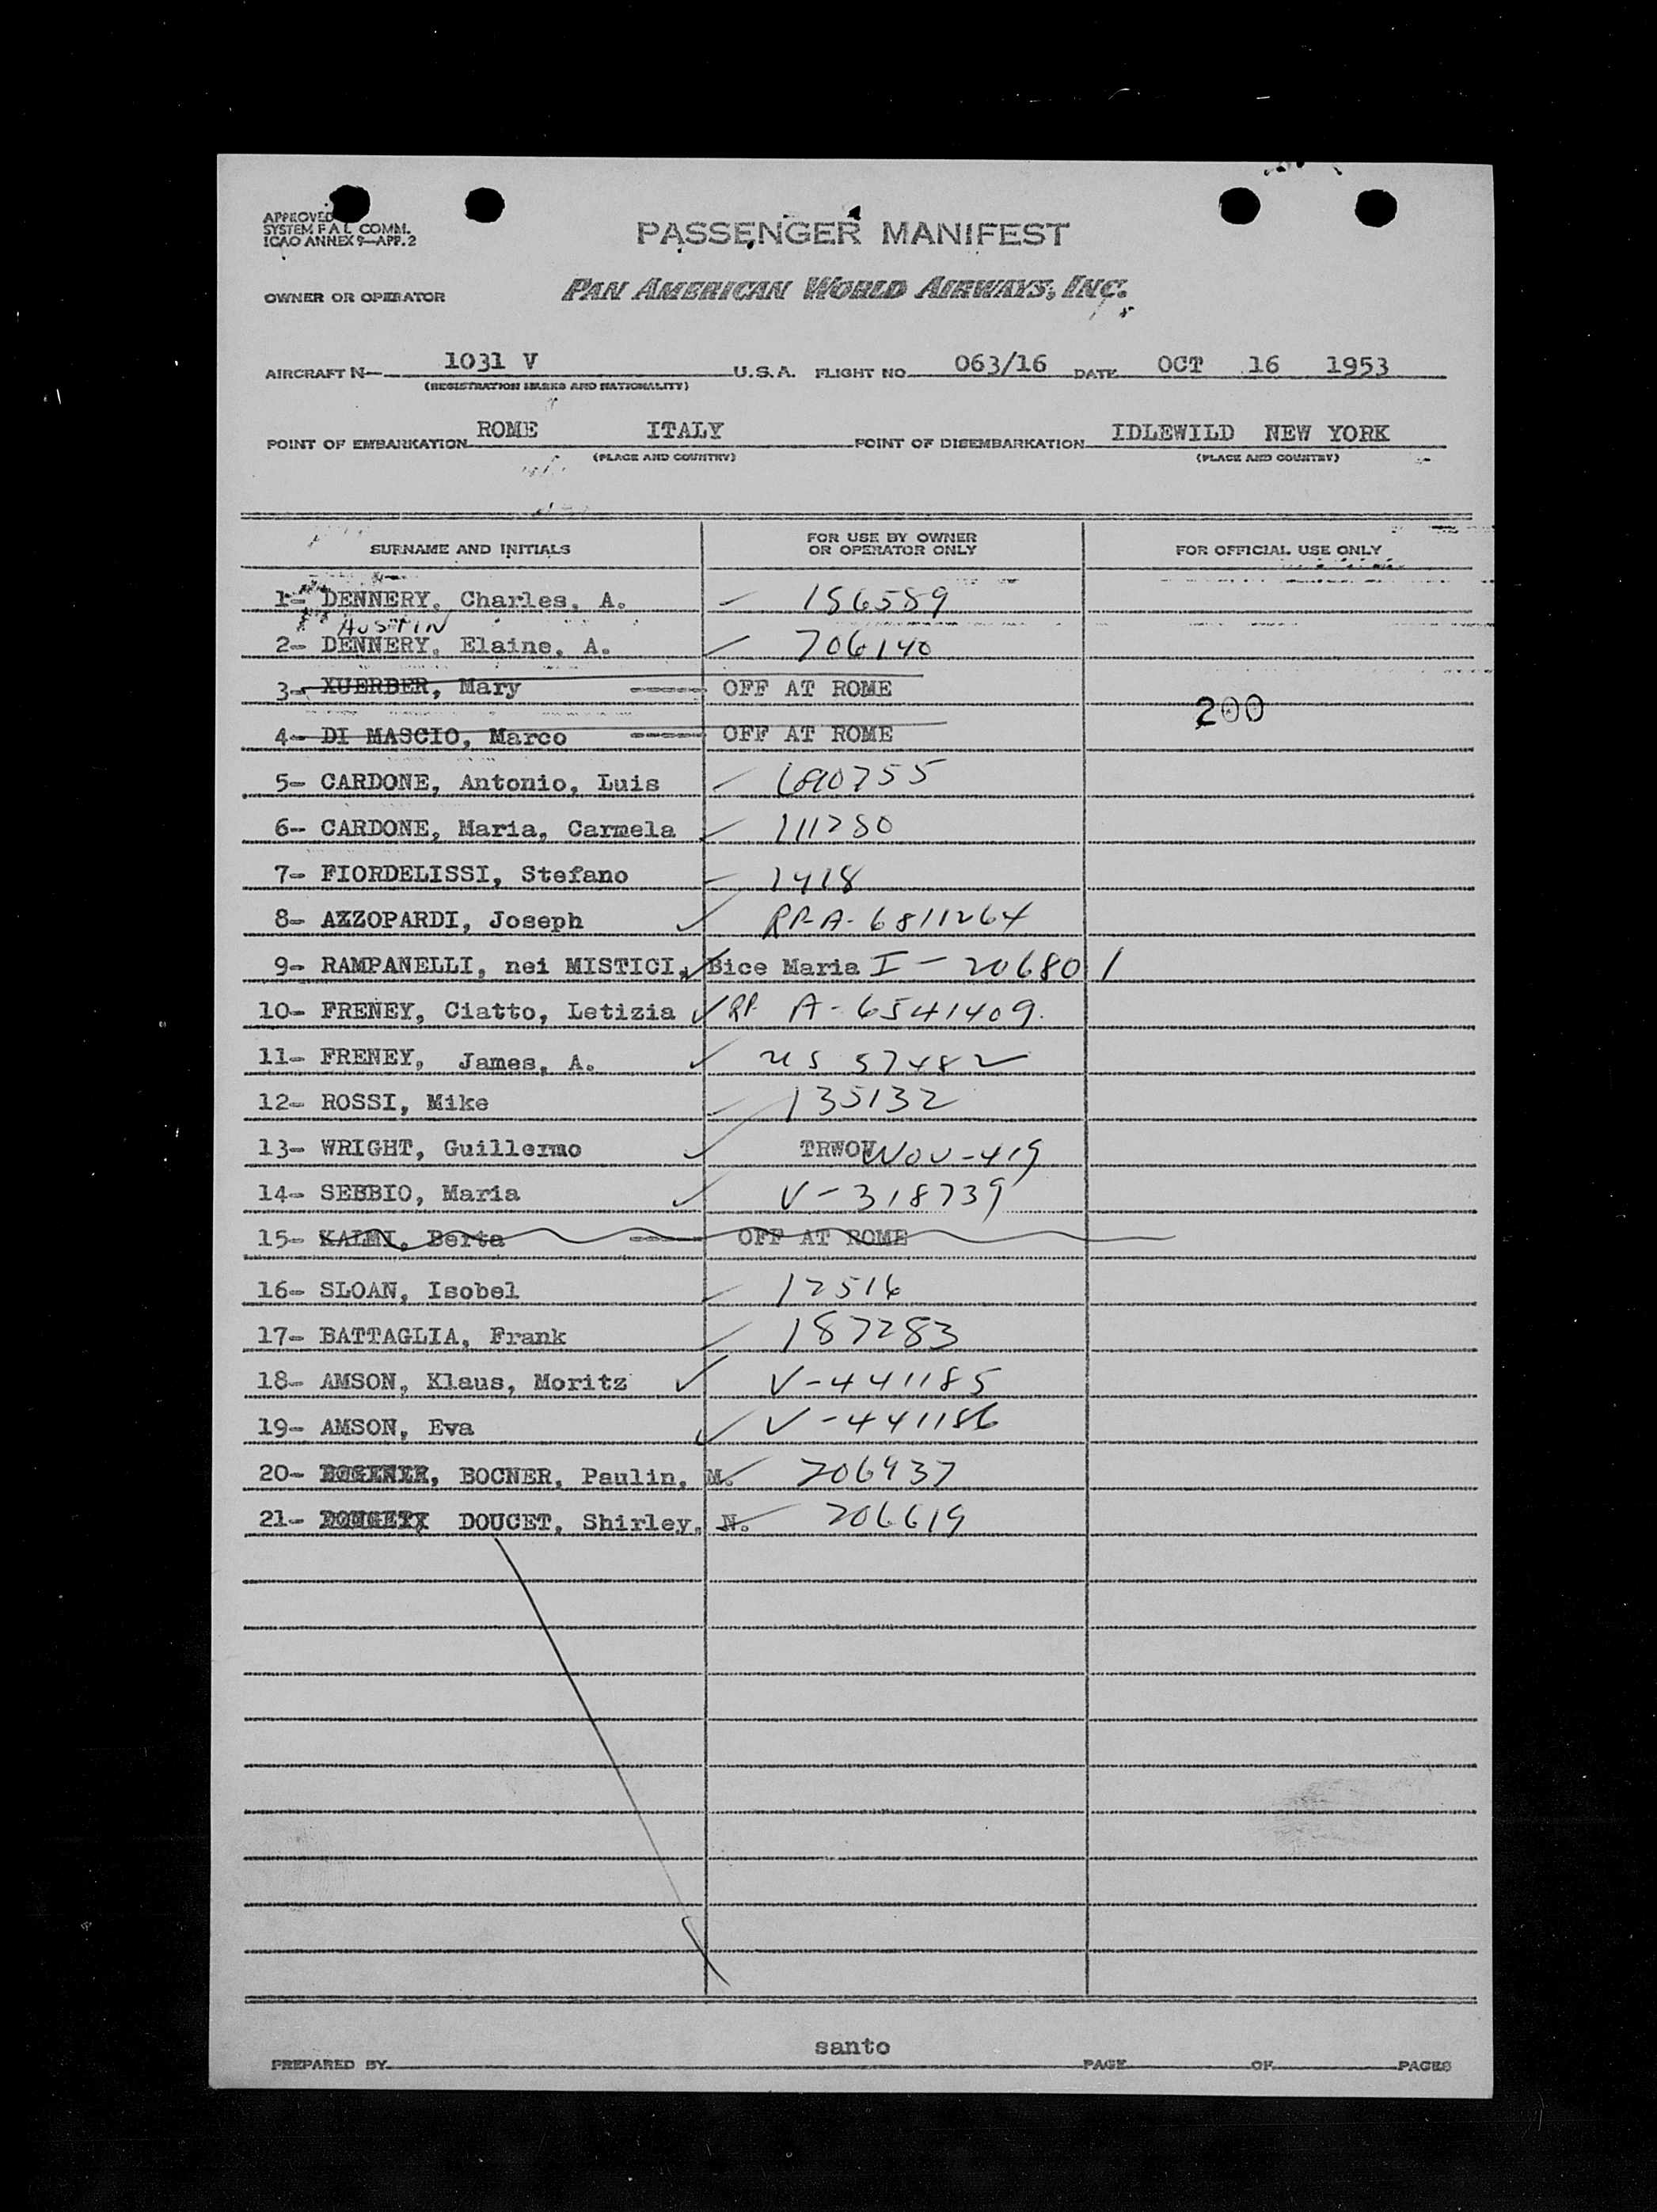 APPROVED
SYSTEM F A L COMM.
ICAO ANNEX 9—APP. 2
PASSENGER MANIFEST
OWNER OR OPERATOR PAN AMERICAN WORLD AIRWAYS, INC.
AIRCRAFT N— 1031 V U.S.A. FLIGHT NO. 063/16 DATE OCT 16 1953
(REGISTRATION MARKS AND NATIONALITY)
POINT OF EMBARKATION ROME ITALY POINT OF DISEMBARKATION IDLEWILD NEW YORK
(PLACE AND COUNTRY) (PLACE AND COUNTRY)
SURNAME AND INITIALS FOR USE BY OWNER OR OPERATOR ONLY FOR OFFICIAL USE ONLY
1- DENNERY, Charles, A. 156589
AUSTIN
2- DENNERY, Elaine, A. 706140
3- XUERBER, Mary ----- OFF AT ROME
200
4- DI MASCIO, Marco ----- OFF AT ROME
5- CARDONE, Antonio, Luis 690755
6- CARDONE, Maria, Carmela 111280
7- FIORDELISSI, Stefano 1418
8- AZZOPARDI, Joseph RP-A-6811264
9- RAMPANELLI, nei MISTICI, Bice Maria I-206801
10- FRENEY, Ciatto, Letizia RP A-6541409.
11- FRENEY, James, A. US 57482
12- ROSSI, Mike 135132
13- WRIGHT, Guillermo TRWOV WOV-419
14- SEBBIO, Maria V-318739
15- KALMI, Berta ----- OFF AT ROME
16- SLOAN, Isobel 12516
17- BATTAGLIA, Frank 187283
18- AMSON, Klaus, Moritz V-441185
19- AMSON, Eva V-441186
20- BOCNER, Paulin, M. 206937
21- DOUCET, Shirley, N. 206619
PREPARED BY santo PAGE OF PAGES